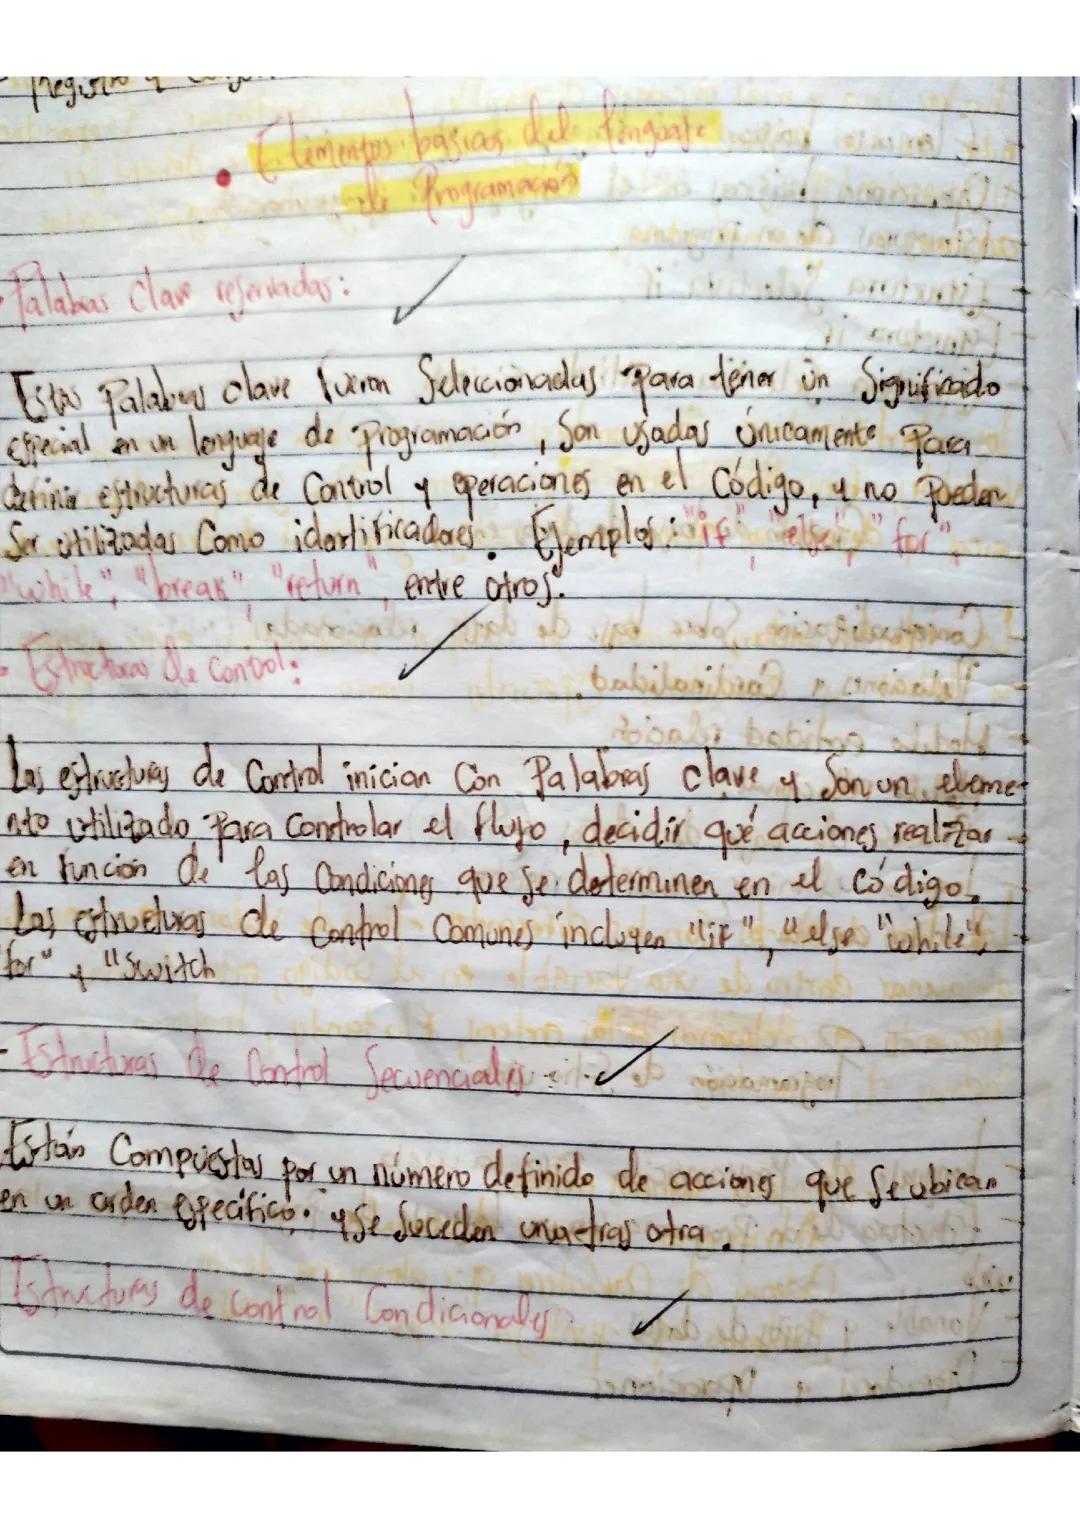 - Registro y
• Elementos basicos del lenguaje
de Programación
- Palabras Clave reservadas:
Estas Palabras clave fueron Seleccionadas para tener un Significado
especial en un lenguaje de Programación, Son usadas únicamente Para
definir estructuras de Control y operaciones en el Código, y no Pueden
Ser utilizadas Como identificadores. Ejemplos: "if", "else", "for",
"while", "break", "return", entre otros.
• Estructuras de control:
Las estructuras de Control inician Con Palabras clave y Son un eleme-
nto utilizado para Controlar el flujo, decidir qué acciones realizar
en función de las Condiciones que se determinen en el código.
Las estructuras de Control Comunes incluyen "if", "else "while",
for" y "Switch
- Estructuras de Control Secuenciales:
Están Compuestas por un número definido de acciones que Se ubican
en un orden específico. y Se Suceden una tras otra.
Estructuras de control Condicionales: